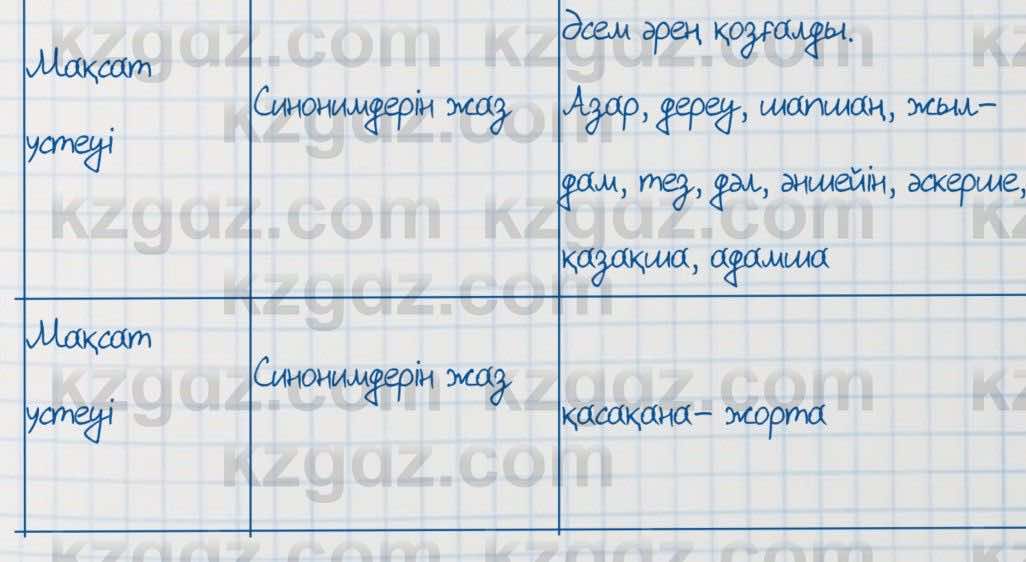 Әсем әрең қозғалды.
Мақсат
үстеуі
Синонимдерін жаз
Азар, дереу, шапшаң, жыл-
дам, тез, дәл, әншейін, әскерше,
қазақша, адамша
Мақсат
үстеуі
Синонимдерін жаз
қасақана- жорта
kzgdz.com